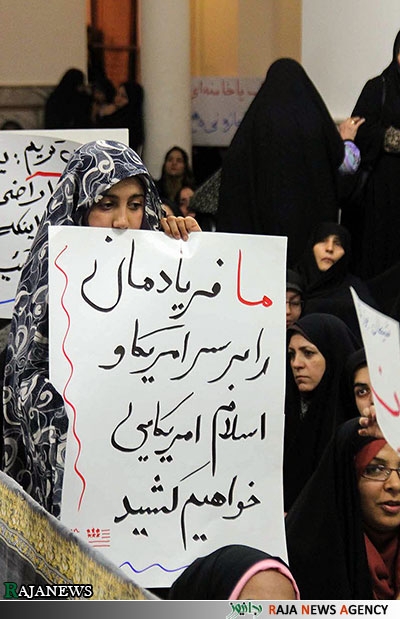 اینکه
ما فریادمان
را بر سر امریکا و
اسلام امریکایی
خواهیم کشید
RAJANEWS
رجانیوز RAJA NEWS AGENCY